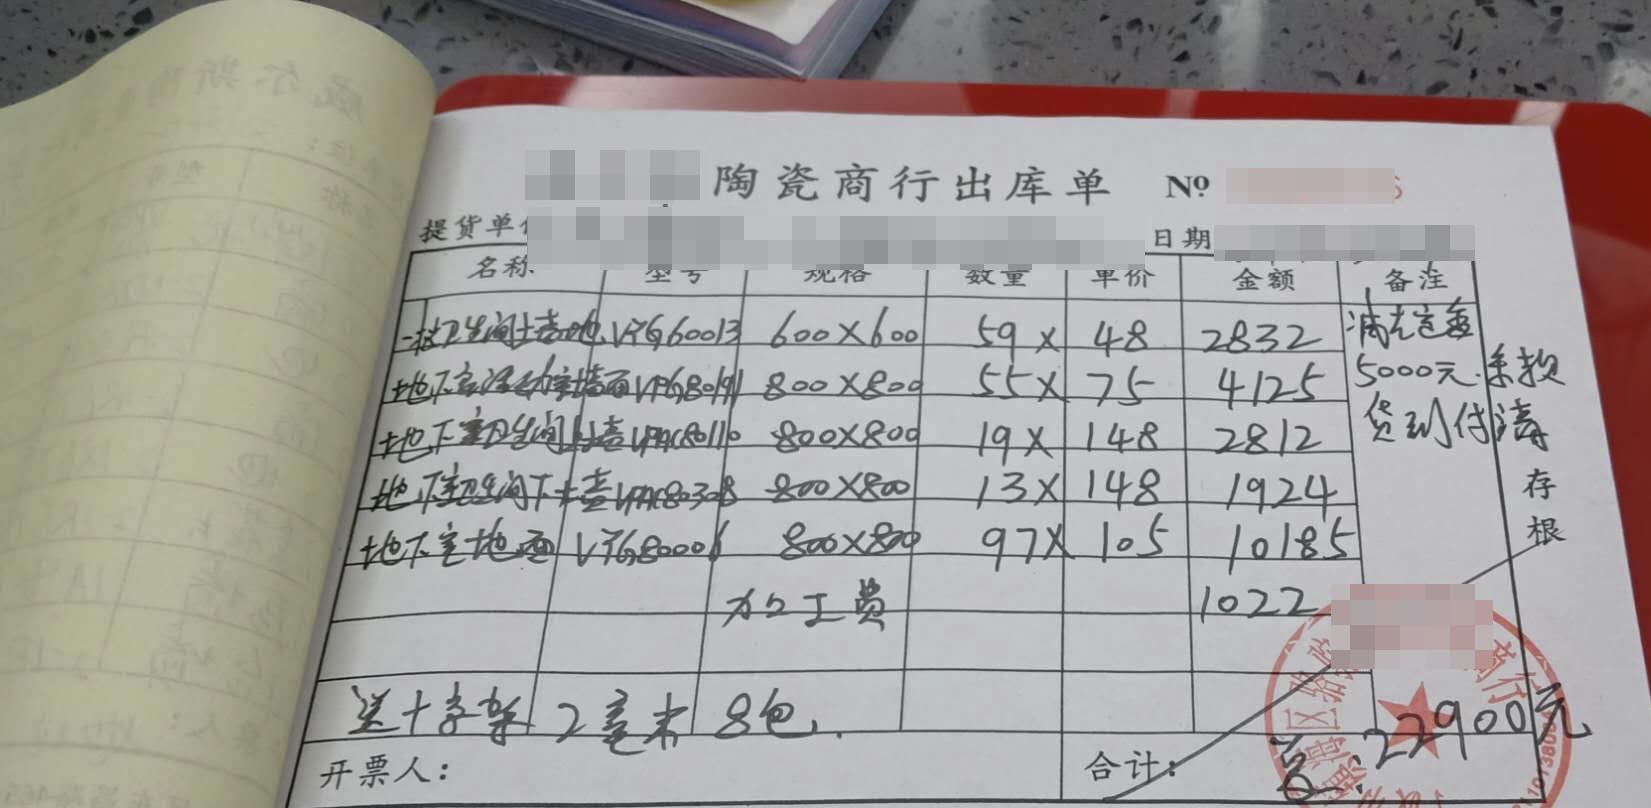 陶瓷商行出库单 №
提货单 日期
名称 型号 规格 数量 单价 金额 备注
一楼卫生间上墙地 VYG60013 600×600 59× 48 2832
地下室 墙面 VPG80191 800×800 55× 75 4125
地下室卫生间上墙 VPAC80110 800×800 19× 148 2812
地下室卫生间下墙 VPAC80308 800×800 13× 148 1924
地下室地面 VYG80006 800×800 97× 105 10185
加工费 1022
送十字架 2毫米 8包.
5000元. 余款
货到付清
存根
总: 22900元
开票人: 合计:
商行